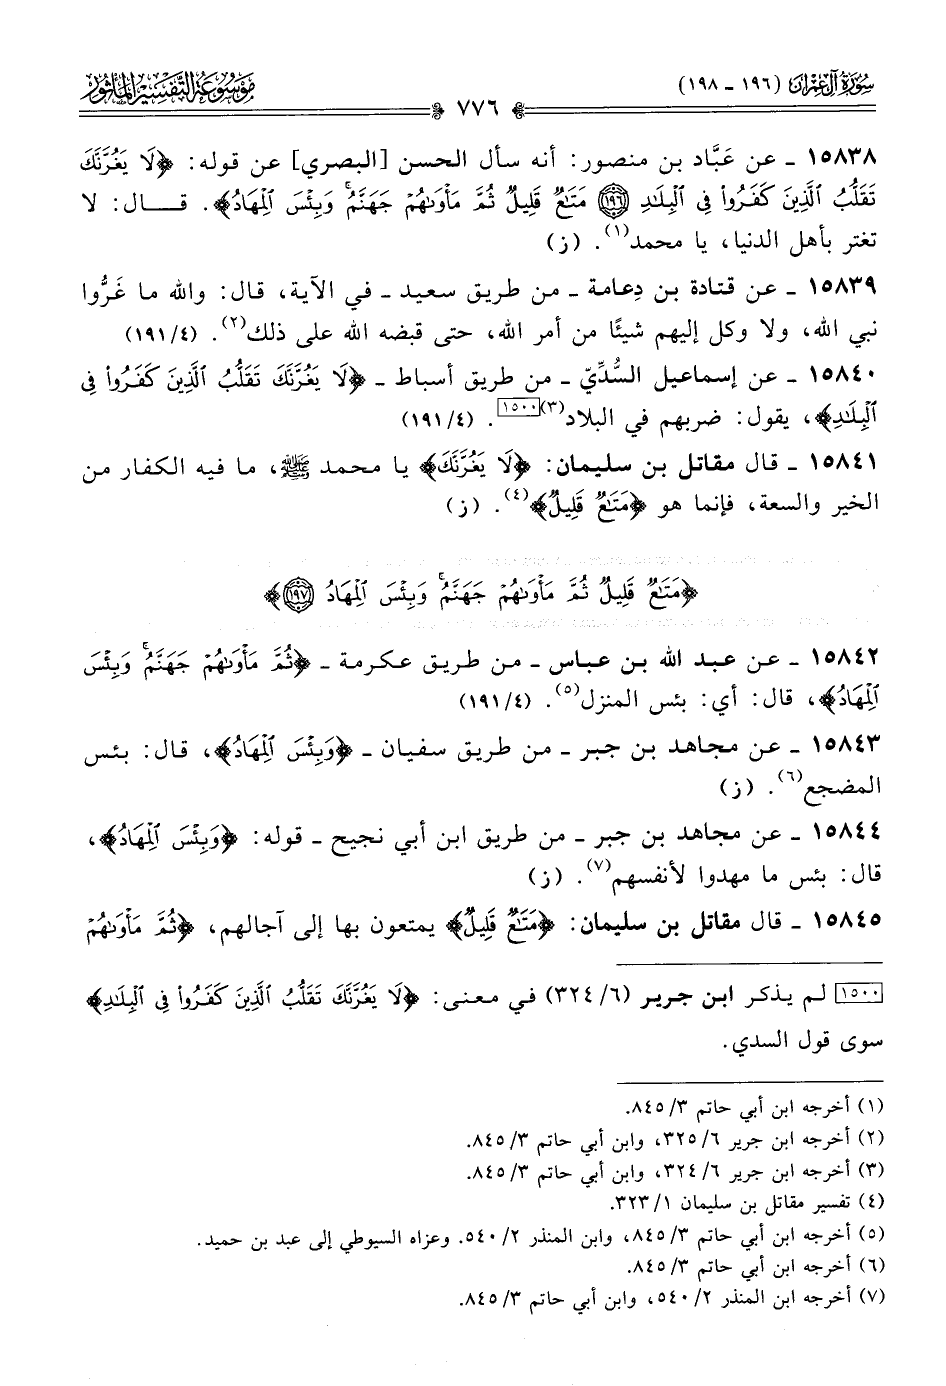 سورة آل عمران (١٩٦ - ١٩٨)
موسوعة التفسير المأثور
٧٧٦
١٥٨٣٨ - عن عَبَّاد بن منصور: أنه سأل الحسن [البصري] عن قوله: ﴿لَا يَغُرَّنَّكَ
تَقَلُّبُ الَّذِينَ كَفَرُوا فِي الْبِلَادِ ١٩٦ مَتَاعٌ قَلِيلٌ ثُمَّ مَأْوَاهُمْ جَهَنَّمُ وَبِئْسَ الْمِهَادُ﴾. قـال: لا
تغتر بأهل الدنيا، يا محمد(١). (ز)
١٥٨٣٩ - عن قتادة بن دِعامة - من طريق سعيد - في الآية، قال: والله ما غَرُّوا
نبي الله، ولا وكل إليهم شيئًا من أمر الله، حتى قبضه الله على ذلك(٢). (٤/ ١٩١)
١٥٨٤٠ - عن إسماعيل السُّدِّيّ - من طريق أسباط - ﴿لَا يَغُرَّنَّكَ تَقَلُّبُ الَّذِينَ كَفَرُوا فِي
الْبِلَادِ﴾، يقول: ضربهم في البلاد(٣)[١٥٠٠]. (٤/ ١٩١)
١٥٨٤١ - قال مقاتل بن سليمان: ﴿لَا يَغُرَّنَّكَ﴾ يا محمد ﷺ، ما فيه الكفار من
الخير والسعة، فإنما هو ﴿مَتَاعٌ قَلِيلٌ﴾(٤). (ز)
﴿مَتَاعٌ قَلِيلٌ ثُمَّ مَأْوَاهُمْ جَهَنَّمُ وَبِئْسَ الْمِهَادُ ١٩٧﴾
١٥٨٤٢ - عن عبد الله بن عباس - من طريق عكرمة - ﴿ثُمَّ مَأْوَاهُمْ جَهَنَّمُ وَبِئْسَ
الْمِهَادُ﴾، قال: أي: بئس المنزل(٥). (٤/ ١٩١)
١٥٨٤٣ - عن مجاهد بن جبر - من طريق سفيان - ﴿وَبِئْسَ الْمِهَادُ﴾، قال: بئس
المضجع(٦). (ز)
١٥٨٤٤ - عن مجاهد بن جبر - من طريق ابن أبي نجيح - قوله: ﴿وَبِئْسَ الْمِهَادُ﴾،
قال: بئس ما مهدوا لأنفسهم(٧). (ز)
١٥٨٤٥ - قال مقاتل بن سليمان: ﴿مَتَاعٌ قَلِيلٌ﴾ يمتعون بها إلى آجالهم، ﴿ثُمَّ مَأْوَاهُمْ
[١٥٠٠] لم يذكر ابن جرير (٦/ ٣٢٤) في معنى: ﴿لَا يَغُرَّنَّكَ تَقَلُّبُ الَّذِينَ كَفَرُوا فِي الْبِلَادِ﴾
سوى قول السدي.
(١) أخرجه ابن أبي حاتم ٣/ ٨٤٥.
(٢) أخرجه ابن جرير ٦/ ٣٢٥، وابن أبي حاتم ٣/ ٨٤٥.
(٣) أخرجه ابن جرير ٦/ ٣٢٤، وابن أبي حاتم ٣/ ٨٤٥.
(٤) تفسير مقاتل بن سليمان ١/ ٣٢٣.
(٥) أخرجه ابن أبي حاتم ٣/ ٨٤٥، وابن المنذر ٢/ ٥٤٠. وعزاه السيوطي إلى عبد بن حميد.
(٦) أخرجه ابن أبي حاتم ٣/ ٨٤٥.
(٧) أخرجه ابن المنذر ٢/ ٥٤٠، وابن أبي حاتم ٣/ ٨٤٥.